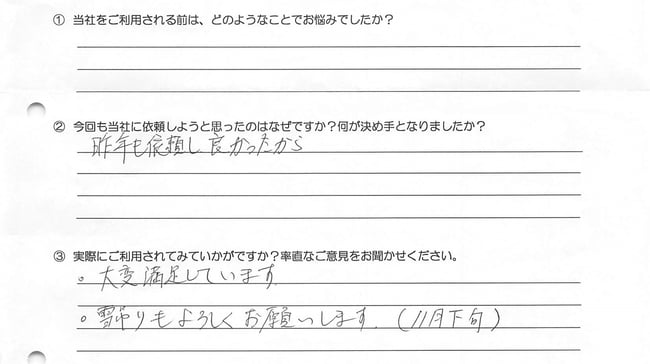 ① 当社をご利用される前は、どのようなことでお悩みでしたか？
② 今回も当社に依頼しようと思ったのはなぜですか？何が決め手となりましたか？
昨年も依頼し良かったから
③ 実際にご利用されてみていかがですか？率直なご意見をお聞かせください。
。大変満足しています
。雪吊りもよろしくお願いします.（11月下旬）